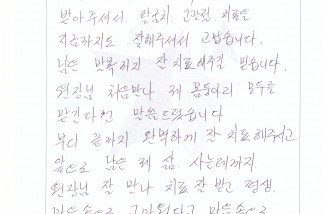 받아주셔서 팔꿈치 고관절 치료를
지금까지도 잘해주셔서 고맙습니다.
남은 반복하지 잘 치료해주길 믿습니다.
원장님 처음만나 제 몸둥아리 모두를
맡긴다헌 말씀드렸습니다
부디 끝까지 완벽하게 잘 치료해주시고
앞으로 남은 제 삶 사는데까지
원장님 잘 만나 치료 잘 받고 평생.
마음속으로 고마웠다고 마음속으로